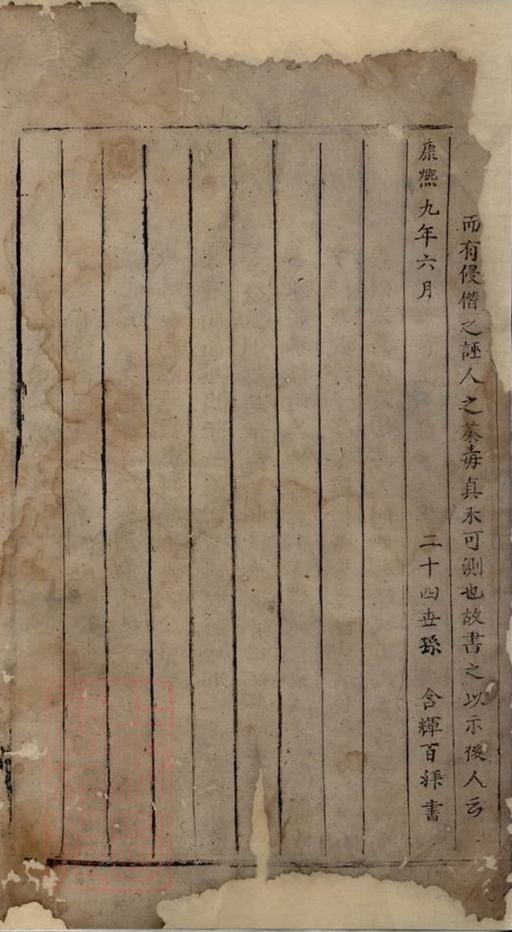 而有侵僭之誣人之荼毒真未可測也故書之以示後人云
康熙九年六月 二十四世孫 含輝百拜書